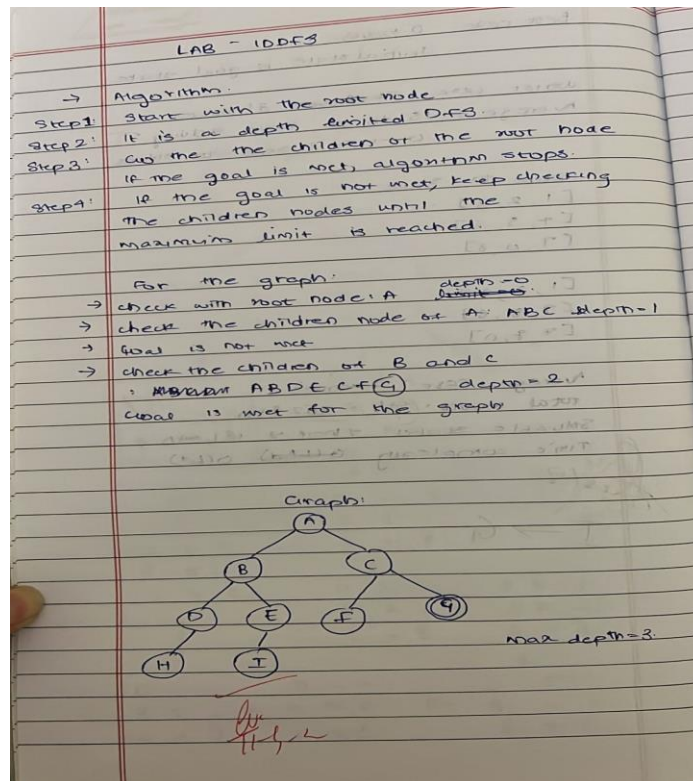 LAB - IDDFS
→ Algorithm.
Step1: Start with the root node
Step 2: It is a depth limited DFS.
Step 3: the the children of the root node
If the goal is met, algorithm stops.
Step4: If the goal is not met, keep checking
the children nodes until the
maximum limit is reached.
For the graph:
→ check with root node: A depth=0
→ check the children node of A: ABC depth=1
→ Goal is not met
→ check the children of B and C
: ABDECFG depth=2.
Goal is met for the graph
Graph:
A
B C
D E F G
max depth=3.
H I